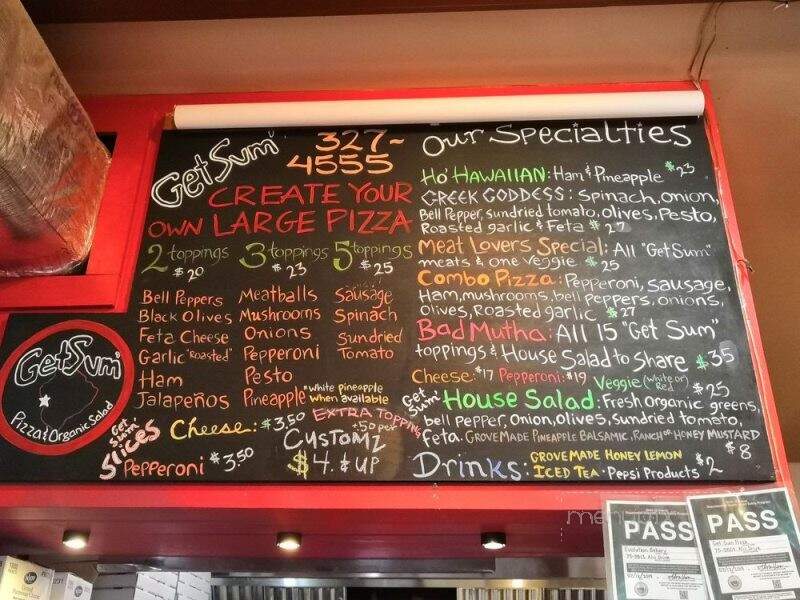 Get Sum'
327-
4555
CREATE YOUR
OWN LARGE PIZZA
2 toppings 3 toppings 5 toppings
$20 $23 $25
Bell Peppers
Black Olives
Feta Cheese
Garlic "Roasted"
Ham
Jalapeños
Meatballs
Mushrooms
Onions
Pepperoni
Pesto
Pineapple
Sausage
Spinach
Sundried
Tomato
*White pineapple
when available
EXTRA TOPPING
+.50 per
Get Sum' Slices
Cheese: $3.50
Pepperoni $3.50
Customz
$4. & UP
Our Specialties
Ho' Hawaiian: Ham & Pineapple $23
Greek Goddess: Spinach, onion,
Bell Pepper, sundried tomato, olives, Pesto,
Roasted garlic & Feta $27
Meat Lovers Special: All "Get Sum"
meats & one veggie $25
Combo Pizza: Pepperoni, sausage,
Ham, mushrooms, bell peppers, onions,
Olives, Roasted garlic $27
Bad Mutha: All 15 "Get Sum"
toppings & House Salad to Share $35
Cheese: $17 Pepperoni: $19 Veggie (white or Red) $25
Get Sum' House Salad: Fresh organic greens,
bell pepper, onion, olives, sundried tomato,
feta. Grove Made Pineapple Balsamic, Ranch or Honey Mustard
$8
Drinks: Grove Made Honey Lemon
Iced Tea · Pepsi Products $2
Get Sum'
Pizza & Organic Salad
PASS
Evolution Bakery
PASS
Get Sum Pizza